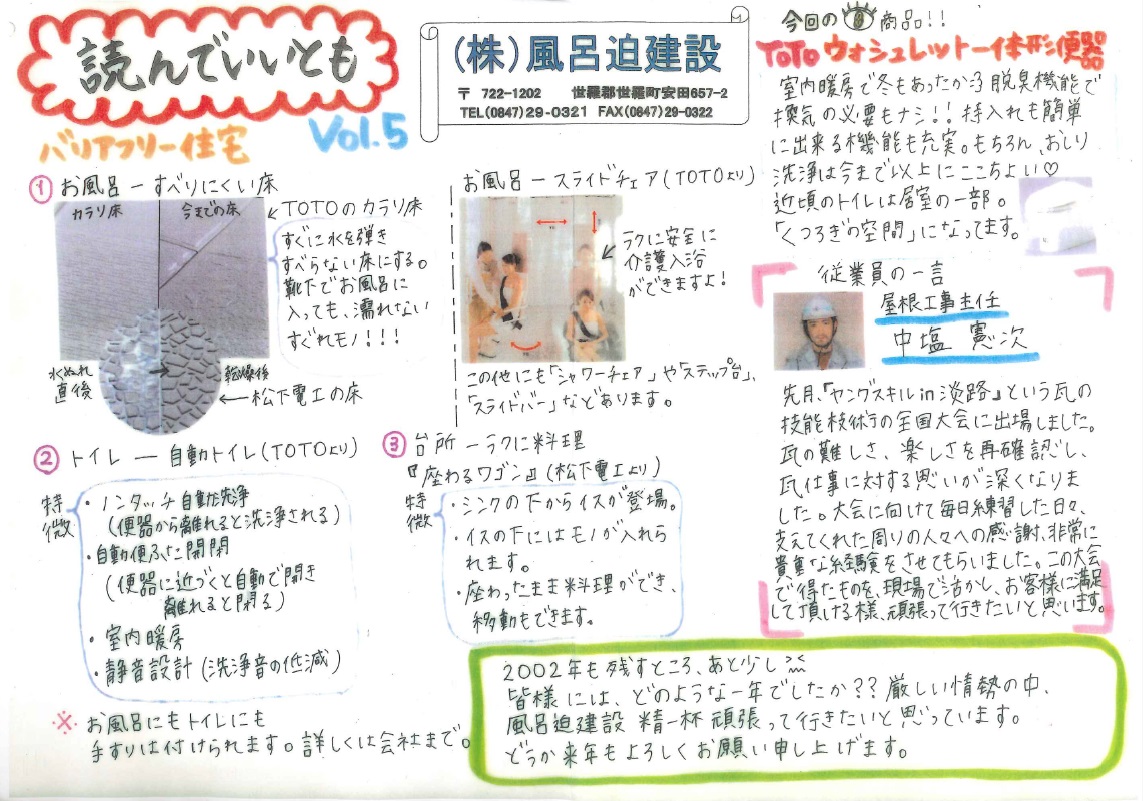 読んでいいとも
バリアフリー住宅
Vol.5
(株)風呂迫建設
〒 722-1202 世羅郡世羅町安田657-2
TEL(0847)29-0321 FAX(0847)29-0322
① お風呂 ー すべりにくい床
カラリ床
今までの床
TOTOのカラリ床
すぐに水を弾き
すべらない床にする。
靴下でお風呂に
入っても、濡れない
すぐれモノ!!!
水ぬれ
直後
乾燥後
松下電工の床
お風呂 ー スライドチェア(TOTOより)
ラクに安全に
介護入浴
ができますよ!
この他にも「シャワーチェア」や「ステップ台」、
「スライドバー」などあります。
② トイレ ー 自動トイレ(TOTOより)
特徴
・ノンタッチ自動洗浄
(便器から離れると洗浄される)
・自動便ふた開閉
(便器に近づくと自動で開き
離れると閉る)
・室内暖房
・静音設計(洗浄音の低減)
※ お風呂にもトイレにも
手すりは付けられます。詳しくは会社まで。
③ 台所 ー ラクに料理
『座わるワゴン』(松下電工より)
特徴
・シンクの下からイスが登場。
・イスの下にはモノが入れら
れます。
・座わったまま料理ができ、
移動もできます。
今回の 商品!!
TOTO ウォシュレット一体形便器
室内暖房で冬もあったか♪脱臭機能で
換気の必要もナシ!!手入れも簡単
に出来る機能も充実。もちろん、おしり
洗浄は今まで以上にここちよい♡
近頃のトイレは居室の一部。
「くつろぎの空間」になってます。
従業員の一言
屋根工事主任
中塩 憲次
先月、「ヤングスキルin淡路」という瓦の
技能技術の全国大会に出場しました。
瓦の難しさ、楽しさを再確認し、
瓦仕事に対する思いが深くなりま
した。大会に向けて毎日練習した日々、
支えてくれた周りの人々への感謝、非常に
貴重な経験をさせてもらいました。この大会
で得たものを、現場で活かし、お客様に満足
して頂ける様、頑張って行きたいと思います。
2002年も残すところ、あと少し
皆様には、どのような一年でしたか??厳しい情勢の中、
風呂迫建設 精一杯 頑張って行きたいと思っています。
どうか来年もよろしくお願い申し上げます。